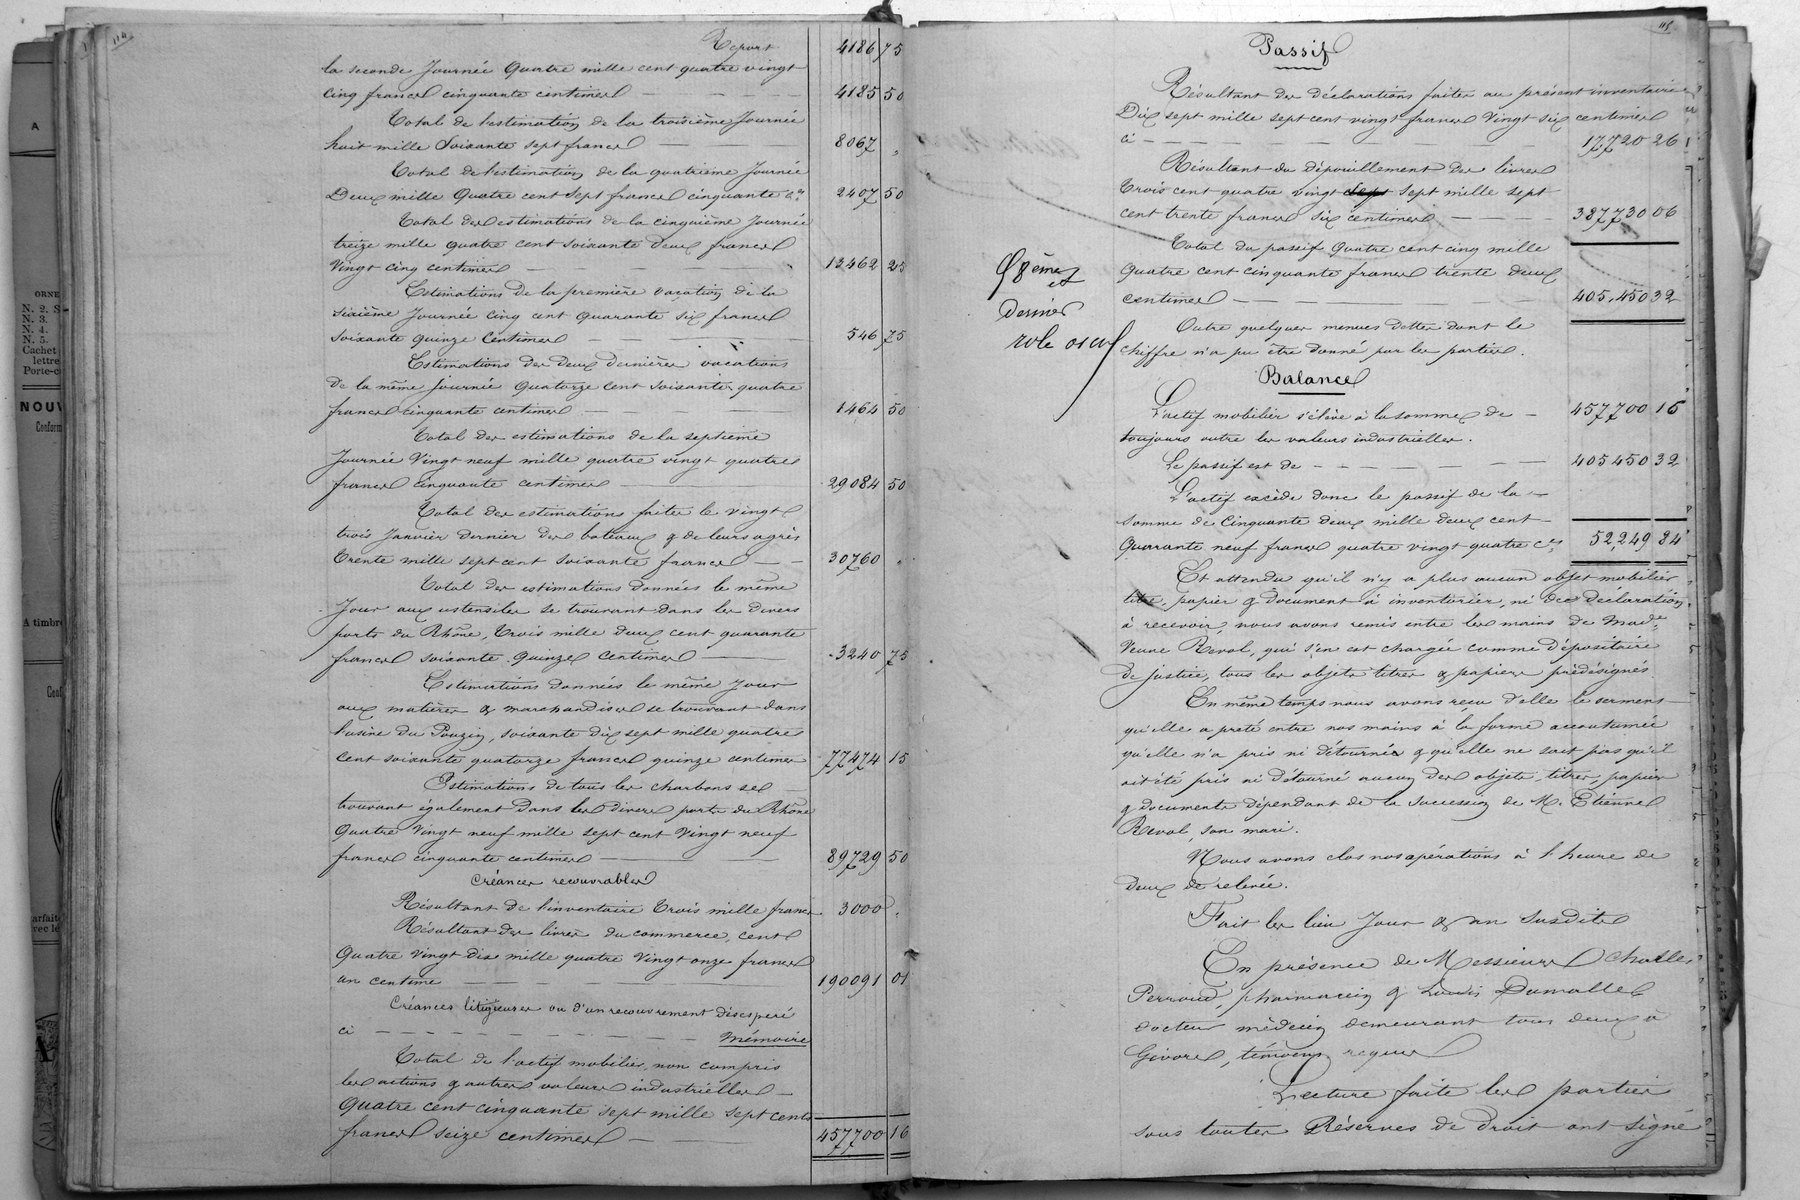 114
Report 4186 75
la seconde Journée Quatre mille cent quatre vingt
Cinq francs cinquante centimes 4185 50
Total de l'estimation de la troisième Journée
huit mille Soixante sept francs 8067 "
Total de l'estimation de la quatrième Journée
Deux mille Quatre cent sept francs cinquante c.es 2407 50
Total des estimations de la cinquième Journée
treize mille quatre cent soixante deux francs
Vingt cinq centimes 13462 25
Estimations de la première vacation de la
sixième Journée Cinq cent Quarante six francs
Soixante quinze Centimes 546 75
Estimations des Deux Dernières vacations
De la même Journée Quatorze cent soixante quatre
francs cinquante centimes 1464 50
Total des estimations de la septième
Journée Vingt neuf mille quatre vingt quatre
francs cinquante centimes 29084 50
Total des estimations faites le vingt
trois Janvier dernier des bateaux & de leurs agrès
Trente mille sept cent soixante francs 30760 "
Total des estimations données le même
Jour aux ustensiles se trouvant dans les divers
ports du Rhône, Trois mille deux cent quarante
francs soixante quinze centimes 3240 75
Estimations données le même jour
aux matières & marchandises se trouvant dans
l'usine du Pouzin, soixante dix sept mille quatre
cent soixante quatorze francs quinze centimes 77474 15
Estimations de tous les charbons se
trouvant également dans les divers ports du Rhône
Quatre Vingt neuf mille sept cent Vingt neuf
francs cinquante centimes 89729 50
Créances recouvrables
Résultant de l'inventaire Trois mille francs 3000 "
Résultant des livres du commerce, cent
Quatre vingt dix mille quatre vingt onze francs
un centime 190091 01
Créances litigieuses ou d'un recouvrement désespéré
ci Mémoire
Total de l'actif mobilier, non compris
les actions & autres valeurs industrielles
Quatre cent cinquante sept mille sept cents
francs seize centimes 457700 16
115
Passif
Résultant des déclarations faites au présent inventaire
Dix sept mille sept cent vingt francs Vingt six centimes
ci 17,720 26
Résultant du dépouillement des livres
Trois cent quatre vingt sept sept mille sept
cent trente francs six centimes 387730 06
Total du passif Quatre cent cinq mille
Quatre cent cinquante francs trente deux
centimes 405,450 32
Outre quelques menues dettes dont le
chiffre n'a pu être donné par les parties.
58ème et
dernier
role
Balance
L'actif mobilier s'élève à la somme de 457700 16
toujours outre les valeurs industrielles.
Le passif est de 405450 32
L'actif excède donc le passif de la
somme de Cinquante deux mille deux cent
Quarante neuf francs quatre vingt quatre c.es 52,249 84
Et attendu qu'il n'y a plus aucun objet mobilier
titre, papier & document à inventorier, ni de déclaration
à recevoir, nous avons remis entre les mains de Mad.e
Veuve Reval, qui s'en est chargée comme dépositaire
de justice, tous les objets titres & papiers prédésignés.
En même temps nous avons reçu d'elle le serment
qu'elle a prêté entre nos mains à la forme accoutumée
qu'elle n'a pris ni détourné & qu'elle ne sait pas qu'il
ait été pris ni détourné aucun des objets, titres, papiers
& documents dépendant de la succession de M. Etienne
Reval, son mari.
Nous avons clos nos opérations à l'heure de
deux de relevée.
Fait les lieu Jour & an susdits
En présence de Messieurs Charles
Perroud, pharmacien & Louis Dumolle
docteur médecin demeurant tous deux à
Givors, témoins requis
Lecture faite les parties
sous toutes Réserves de Droit ont signé